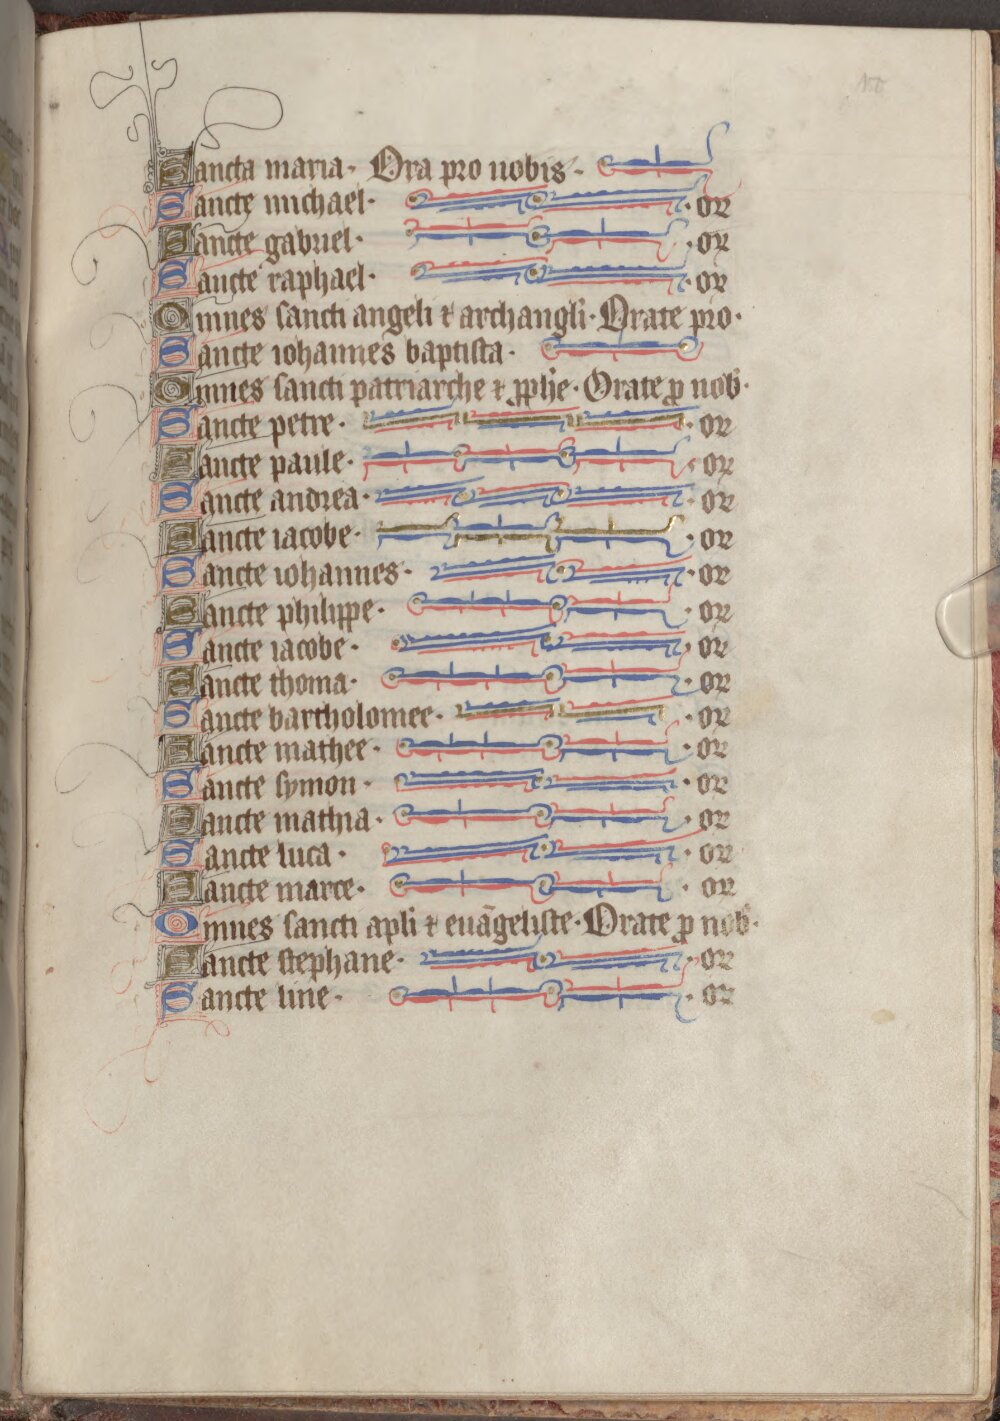 Sancta maria· Ora pro nobis·
Sancte michael· · or
Sancte gabriel· · or
Sancte raphael· · or
Omnes sancti angeli ⁊ archangl'i· Orate pro·
Sancte iohannes baptista·
Omnes sancti patriarche ⁊ ꝓph'e· Orate ꝑ nob'·
Sancte petre· · or
Sancte paule· · or
Sancte andrea· · or
Sancte iacobe· · or
Sancte iohannes· · or
Sancte philippe· · or
Sancte iacobe· · or
Sancte thoma· · or
Sancte bartholomee· · or
Sancte mathee· · or
Sancte symon· · or
Sancte mathia· · or
Sancte luca· · or
Sancte marce· · or
Omnes sancti apl'i ⁊ euāgeliste· Orate ꝑ nob'·
Sancte stephane· · or
Sancte line· · or